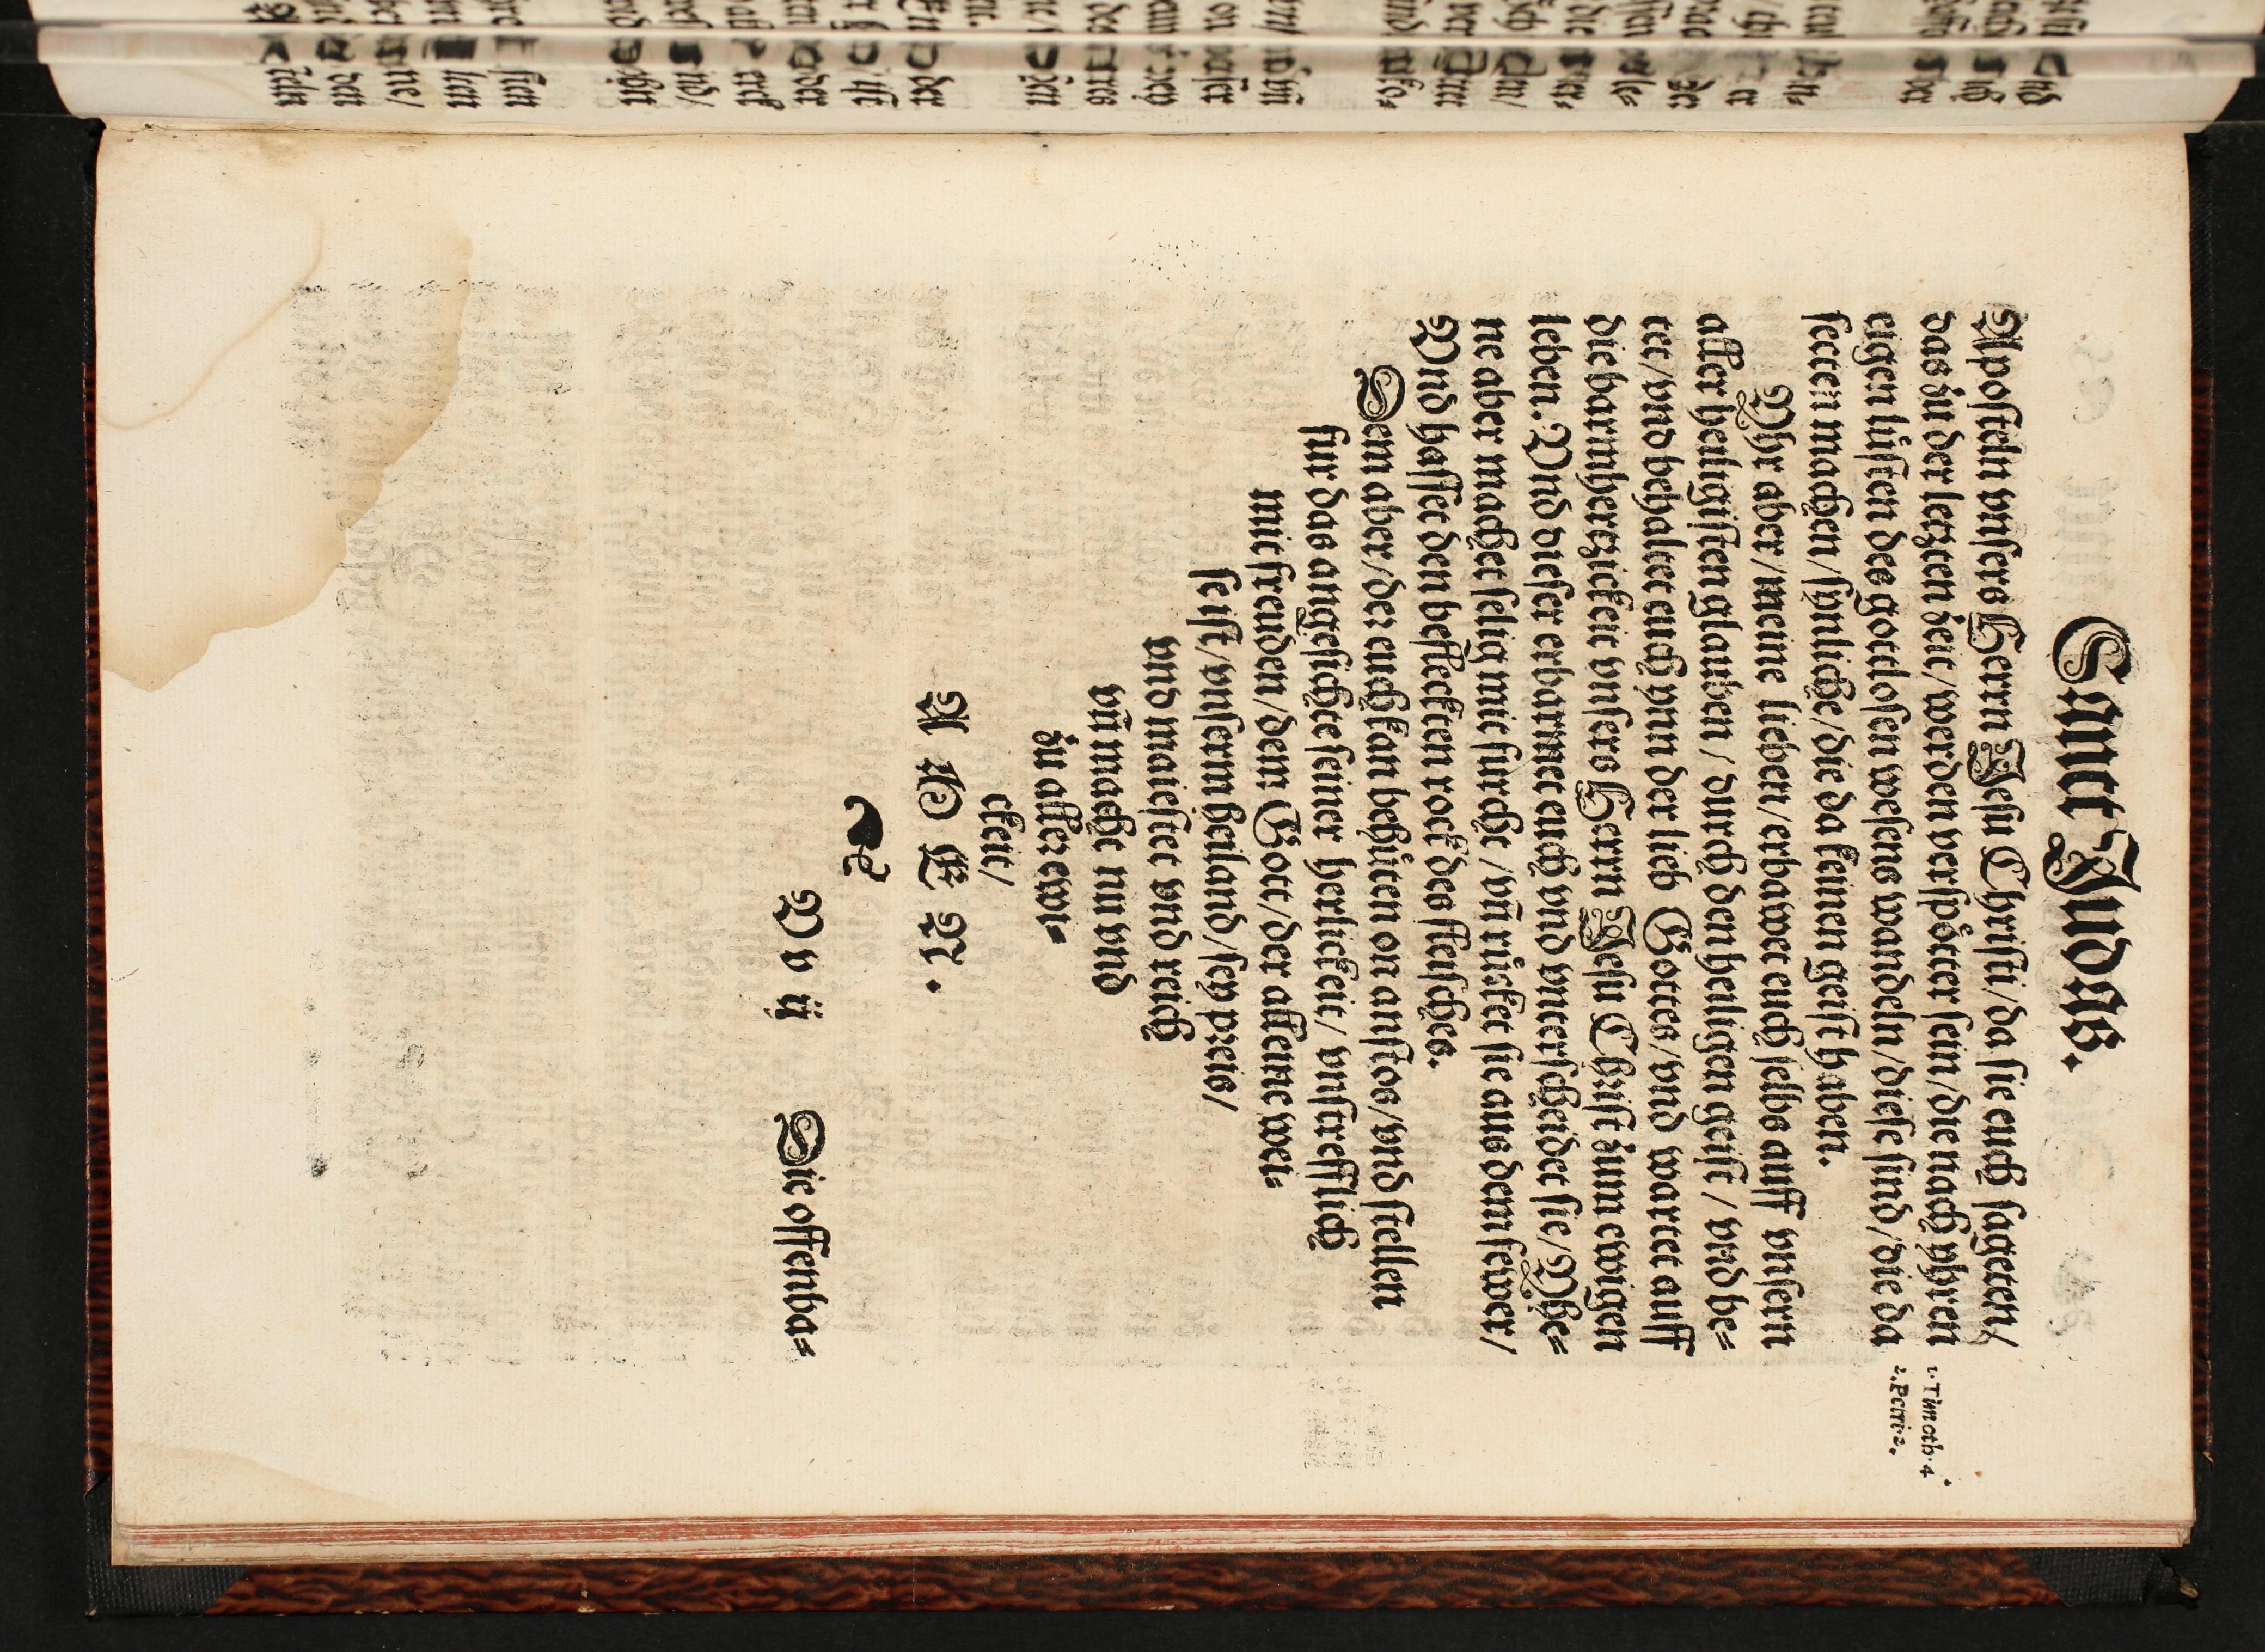 Sanct Judas.
Aposteln vnsers Herrn Jesu Christi/da sie euch sageten/
das zu der letzten zeit/werden verspötter sein/die nach yhren
eigen lüsten des gottlosen wesens wandeln/diese sind/die da
secten machen/synliche/die da keinen geist haben.
Yhr aber/meine lieben/erbawet euch selbs auff vnsern
aller heiligisten glauben/durch den heiligen geist/vnd be=
tet/vnd behaltet euch ynn der lieb Gottes/vnd wartet auff
die barmhertzickeit vnsers Herrn Jesu Christ zum ewigen
leben. Vnd dieser erbarmet euch vnd vnterscheidet sie/Yhe=
ne aber machet selig mit furcht/vñ rücket sie aus dem fewer/
Vnd hasset den befleckten rock des fleisches.
Dem aber/der euch kan behüten on anstos/vnd stellen
fur das angesichte seiner herlickeit/vnstrefflich
mit freuden/dem Gott/der alleine wei=
se ist/vnserm heiland/sey preis/
vnd maiestet vnd reich
vñ macht nu vnd
zu aller ewi=
ckeit/
A M E N.
V v ij
Die offenba=
1. Timoth. 4.
2. Petri. 2.